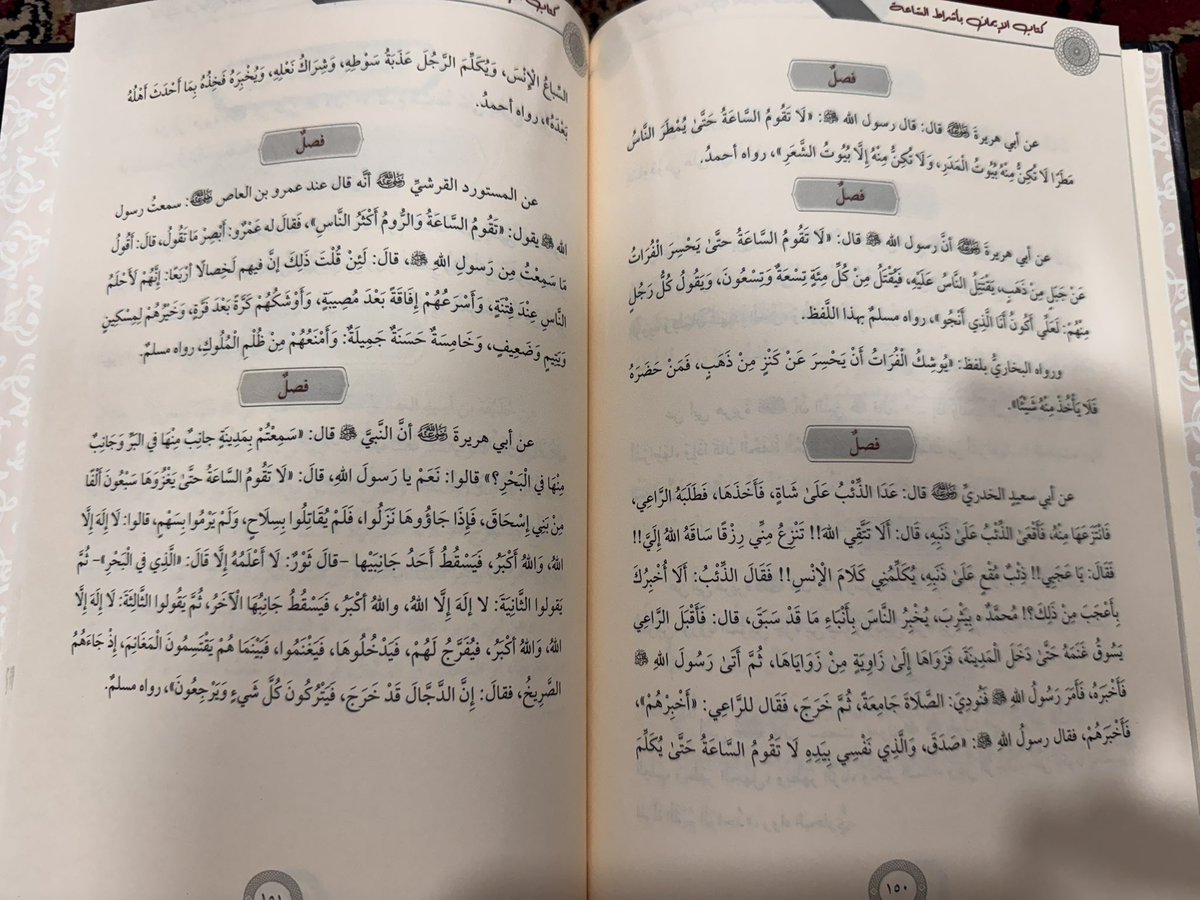 كتاب الإيمان بأشراط الساعة
فصلٌ
عن أبي هريرةَ ﵁ قال: قال رسول الله ﷺ: «لَا تَقُومُ السَّاعَةُ حَتَّىٰ يُمْطَرَ النَّاسُ
مَطَرًا لَا تُكِنُّ مِنْهُ بُيُوتُ الْمَدَرِ، وَلَا تُكِنُّ مِنْهُ إِلَّا بُيُوتُ الشَّعَرِ»، رواه أحمدُ.
فصلٌ
عن أبي هريرةَ ﵁ أنَّ رسول الله ﷺ قال: «لَا تَقُومُ السَّاعَةُ حتَّىٰ يَحْسِرَ الْفُرَاتُ
عَنْ جَبَلٍ مِنْ ذَهَبٍ، يَقْتَتِلُ النَّاسُ عَلَيْهِ، فَيُقْتَلُ مِنْ كُلِّ مِئَةٍ تِسْعَةٌ وَتِسْعُونَ، وَيَقُولُ كُلُّ رَجُلٍ
مِنْهُمْ: لَعَلِّي أَكُونُ أَنَا الَّذِي أَنْجُو»، رواه مسلمٌ بهذا اللَّفظ.
ورواه البخاريُّ بلفظ: «يُوشِكُ الْفُرَاتُ أَنْ يَحْسِرَ عَنْ كَنْزٍ مِنْ ذَهَبٍ، فَمَنْ حَضَرَهُ
فَلَا يَأْخُذْ مِنْهُ شَيْئًا».
فصلٌ
عن أبي سعيدٍ الخدريِّ ﵁ قال: عَدَا الذِّئْبُ عَلَىٰ شَاةٍ، فَأَخَذَهَا، فَطَلَبَهُ الرَّاعِي،
فَانْتَزَعَهَا مِنْهُ، فَأَقْعَىٰ الذِّئْبُ عَلَىٰ ذَنَبِهِ، قَالَ: أَلَا تَتَّقِي اللهَ!! تَنْزِعُ مِنِّي رِزْقًا سَاقَهُ اللهُ إِلَيَّ!!
فَقَالَ: يَا عَجَبِي!! ذِئْبٌ مُقْعٍ عَلَىٰ ذَنَبِهِ، يُكَلِّمُنِي كَلَامَ الْإِنْسِ!! فَقَالَ الذِّئْبُ: أَلَا أُخْبِرُكَ
بِأَعْجَبَ مِنْ ذَلِكَ؟! مُحمَّدٌ ﷺ بِيَثْرِبَ، يُخْبِرُ النَّاسَ بِأَنْبَاءِ مَا قَدْ سَبَقَ، قال: فَأَقْبَلَ الرَّاعِي
يَسُوقُ غَنَمَهُ حَتَّىٰ دَخَلَ الْمَدِينَةَ، فَزَوَاهَا إِلَىٰ زَاوِيَةٍ مِنْ زَوَايَاهَا، ثُمَّ أَتَىٰ رَسُولَ اللهِ ﷺ
فَأَخْبَرَهُ، فَأَمَرَ رَسُولُ اللهِ ﷺ فَنُودِيَ: الصَّلَاةَ جَامِعَةً، ثُمَّ خَرَجَ، فَقَال للرَّاعِي: «أَخْبِرْهُمْ»،
فَأَخْبَرَهُمْ، فقال رسولُ اللهِ ﷺ: «صَدَقَ، وَالَّذِي نَفْسِي بِيَدِهِ لَا تَقُومُ السَّاعَةُ حَتَّىٰ يُكَلِّمَ
١٥٠
السِّبَاعُ الْإِنْسَ، وَيُكَلِّمَ الرَّجُلَ عَذَبَةُ سَوْطِهِ، وَشِرَاكُ نَعْلِهِ، وَيُخْبِرَهُ فَخِذُهُ بِمَا أَحْدَثَ أَهْلُهُ
بَعْدَهُ»، رواه أحمدُ.
فصلٌ
عن المستورد القرشيِّ ﵁ أنَّه قال عند عمرو بن العاص ﵁: سمعتُ رسول
الله ﷺ يقول: «تَقُومُ السَّاعَةُ وَالرُّومُ أَكْثَرُ النَّاسِ»، فَقَالَ له عَمْرٌو: أَبْصِرْ مَا تَقُولُ، قَالَ: أَقُولُ
مَا سَمِعْتُ مِن رَسولِ اللهِ ﷺ، قَالَ: لَئِنْ قُلْتَ ذَلِكَ إنَّ فيهم لَخِصالًا أرْبَعًا: إِنَّهُمْ لَأَحْلَمُ
النَّاسِ عِنْدَ فِتْنَةٍ، وَأَسْرَعُهُمْ إِفَاقَةً بَعْدَ مُصِيبَةٍ، وَأَوْشَكُهُمْ كَرَّةً بَعْدَ فَرَّةٍ، وَخَيْرُهُمْ لِمِسْكِينٍ
وَيَتِيمٍ وَضَعِيفٍ، وَخَامِسَةٌ حَسَنَةٌ جَمِيلَةٌ: وَأَمْنَعُهُمْ مِنْ ظُلْمِ الْمُلُوكِ، رواه مسلمٌ.
فصلٌ
عن أبي هريرةَ ﵁ أنَّ النَّبيَّ ﷺ قال: «سَمِعْتُمْ بِمَدِينَةٍ جانِبٌ مِنْهَا في الْبَرِّ وَجَانِبٌ
مِنْهَا في الْبَحْرِ؟» قالوا: نَعَمْ يا رَسولَ اللهِ، قال: «لَا تَقُومُ السَّاعَةُ حتَّىٰ يَغْزُوَهَا سَبْعُونَ أَلْفًا
مِنْ بَنِي إِسْحَاقَ، فَإِذَا جَاؤُوهَا نَزَلُوا، فَلَمْ يُقَاتِلُوا بِسِلَاحٍ، وَلَمْ يَرْمُوا بِسَهْمٍ، قالوا: لا إلَهَ إلَّا
اللهُ، وَاللهُ أَكْبَرُ، فَيَسْقُطُ أَحَدُ جَانِبَيْها -قالَ ثَوْرٌ: لا أَعْلَمُهُ إلَّا قَالَ: «الَّذِي في الْبَحْرِ»- ثُمَّ
يَقولوا الثَّانِيَةَ: لا إلَهَ إلَّا اللهُ، واللهُ أكْبَرُ، فَيَسْقُطُ جَانِبُهَا الْآخَرُ، ثُمَّ يَقُولوا الثَّالِثَةَ: لا إلَهَ إلَّا
اللهُ، وَاللهُ أكْبَرُ، فَيُفَرَّجُ لَهُمْ، فَيَدْخُلُوها، فَيَغْنَمُوا، فَبَيْنَما هُمْ يَقْتَسِمُونَ الْمَغَانِمَ، إذْ جَاءَهُمُ
الصَّرِيخُ، فقالَ: إِنَّ الدَّجَّالَ قَدْ خَرَجَ، فَيَتْرُكُونَ كُلَّ شَيءٍ وَيَرْجِعُونَ»، رواه مسلمٌ.
١٥١